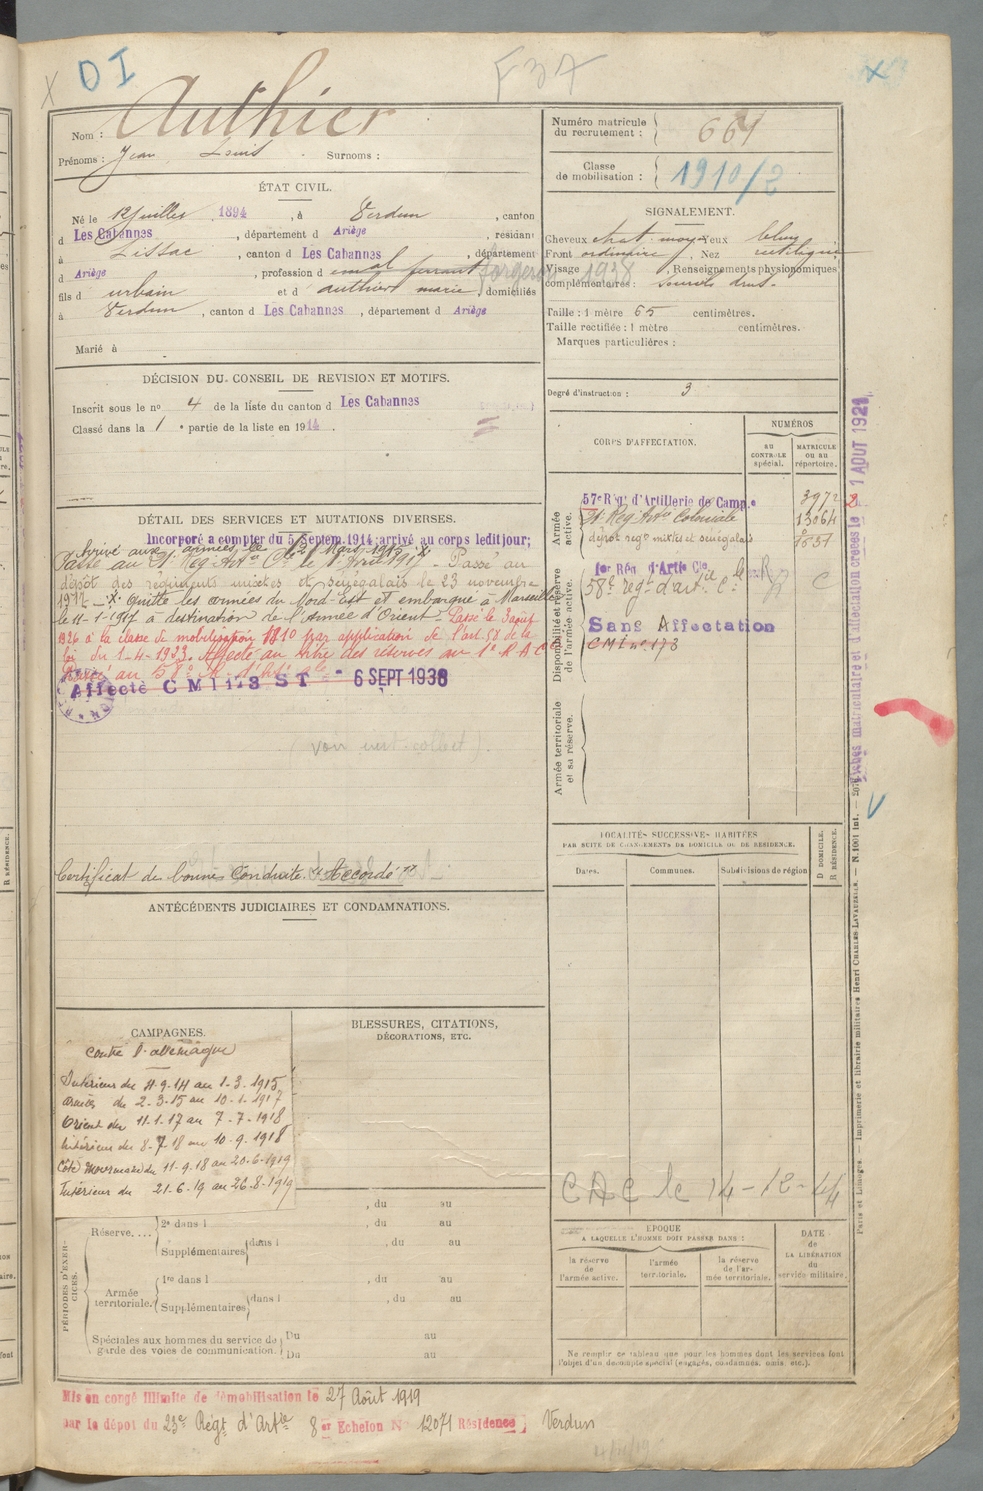 D I
F 3 A
Nom : Authier
Prénoms : Jean Louis Surnoms :
Numéro matricule du recrutement : 661
Classe de mobilisation : 1910/2
ÉTAT CIVIL.
Né le 12 Juillet 1894, à Verdun, canton
d Les Cabannes, département d Ariège, résidant
à Lissac, canton d Les Cabannes, département
d Ariège, profession d forgeron
fils d urbain et d authier marie, domiciliés
à Verdun, canton d Les Cabannes, département d Ariège
Marié à
SIGNALEMENT.
Cheveux chat. moy. Yeux bleus
Front ordinaire, Nez rectiligne
Visage, Renseignements physionomiques
complémentaires : sourcils drus.
1938
Taille : 1 mètre 65 centimètres.
Taille rectifiée : 1 mètre centimètres.
Marques particulières :
DÉCISION DU CONSEIL DE REVISION ET MOTIFS.
Inscrit sous le no 4 de la liste du canton d Les Cabannes
Classé dans la 1 e partie de la liste en 1914.
Degré d'instruction : 3
CORPS D'AFFECTATION.
NUMÉROS
AU CONTROLE spécial.
MATRICULE OU AU répertoire.
Armée active.
57e Rég. d'Artillerie de Camp.e 3972
Rég Art. Coloniale 13064
dépôt regts mixtes et sénégalais
Disponibilité et réserve de l'armée active.
1er Rég. d'Artie Cle
58e reg t d'artie Ce
Sans Affectation
C M I no 173
Armée territoriale et sa réserve.
DÉTAIL DES SERVICES ET MUTATIONS DIVERSES.
Incorporé a compter du 5 Septem. 1914; arrivé au corps ledit jour;
Arrivé aux armées le 2 Mars 1915. X.
Passé au Reg Art Cle le 1 Avril 1917 - Passé au
dépôt des régiments mixtes et sénégalais le 23 novembre
1917 - X. Quitte les armées du Nord-Est et embarqué à Marseille
le 11-1-1917 à destination de l'Armée d'Orient - Passé le 3 août
1926 à la classe de mobilisation 1910 par application de l'art. 58 de la
loi du 1-4-1923. Affecté au titre des réserves au 1er R.A.C
Affecté C M I 173 ST - 6 SEPT 1938
(voir vert. collect).
Certificat de bonne Conduite "Accordé"
ANTÉCÉDENTS JUDICIAIRES ET CONDAMNATIONS.
LOCALITÉS SUCCESSIVES HABITÉES
PAR SUITE DE CHANGEMENTS DE DOMICILE OU DE RÉSIDENCE.
Dates.
Communes.
Subdivisions de région
D DOMICILE.
R RÉSIDENCE.
CAMPAGNES.
Contre l'allemagne
Intérieur du 4.9.14 au 1.3.1915
armées du 2.3.15 au 10.1.1917
Orient du 11.1.17 au 7.7.1918
Intérieur du 8.7.18 au 10.9.1918
Côte Mourmane du 11.9.18 au 20.6.1919
Intérieur du 21.6.19 au 26.8.1919
BLESSURES, CITATIONS, DÉCORATIONS, ETC.
C A C le 14-12-44
PÉRIODES D'EXERCICES.
, du au
Réserve.... 2e dans l , du au
Supplémentaires dans l , du au
Armée territoriale. 1re dans l , du au
Supplémentaires dans l , du au
Spéciales aux hommes du service de garde des voies de communication. Du au
Du au
EPOQUE
A LAQUELLE L'HOMME DOIT PASSER DANS :
la réserve de l'armée active.
l'armée territoriale.
la réserve de l'armée territoriale.
DATE de LA LIBÉRATION du service militaire.
Ne remplir ce tableau que pour les hommes dont les services font
l'objet d'un décompte spécial (engagés, condamnés, omis, etc.).
Mis en congé illimité de démobilisation le 27 Août 1919
par le dépôt du 23e Régt d'Artie 8er Echelon No 12071 Résidence Verdun
Fiches matriculaire et d'affectation créées le 1 AOUT 1921
Paris et Limoges. — Imprimerie et librairie militaires Henri CHARLES-LAVAUZELLE. — N. 1001 int.